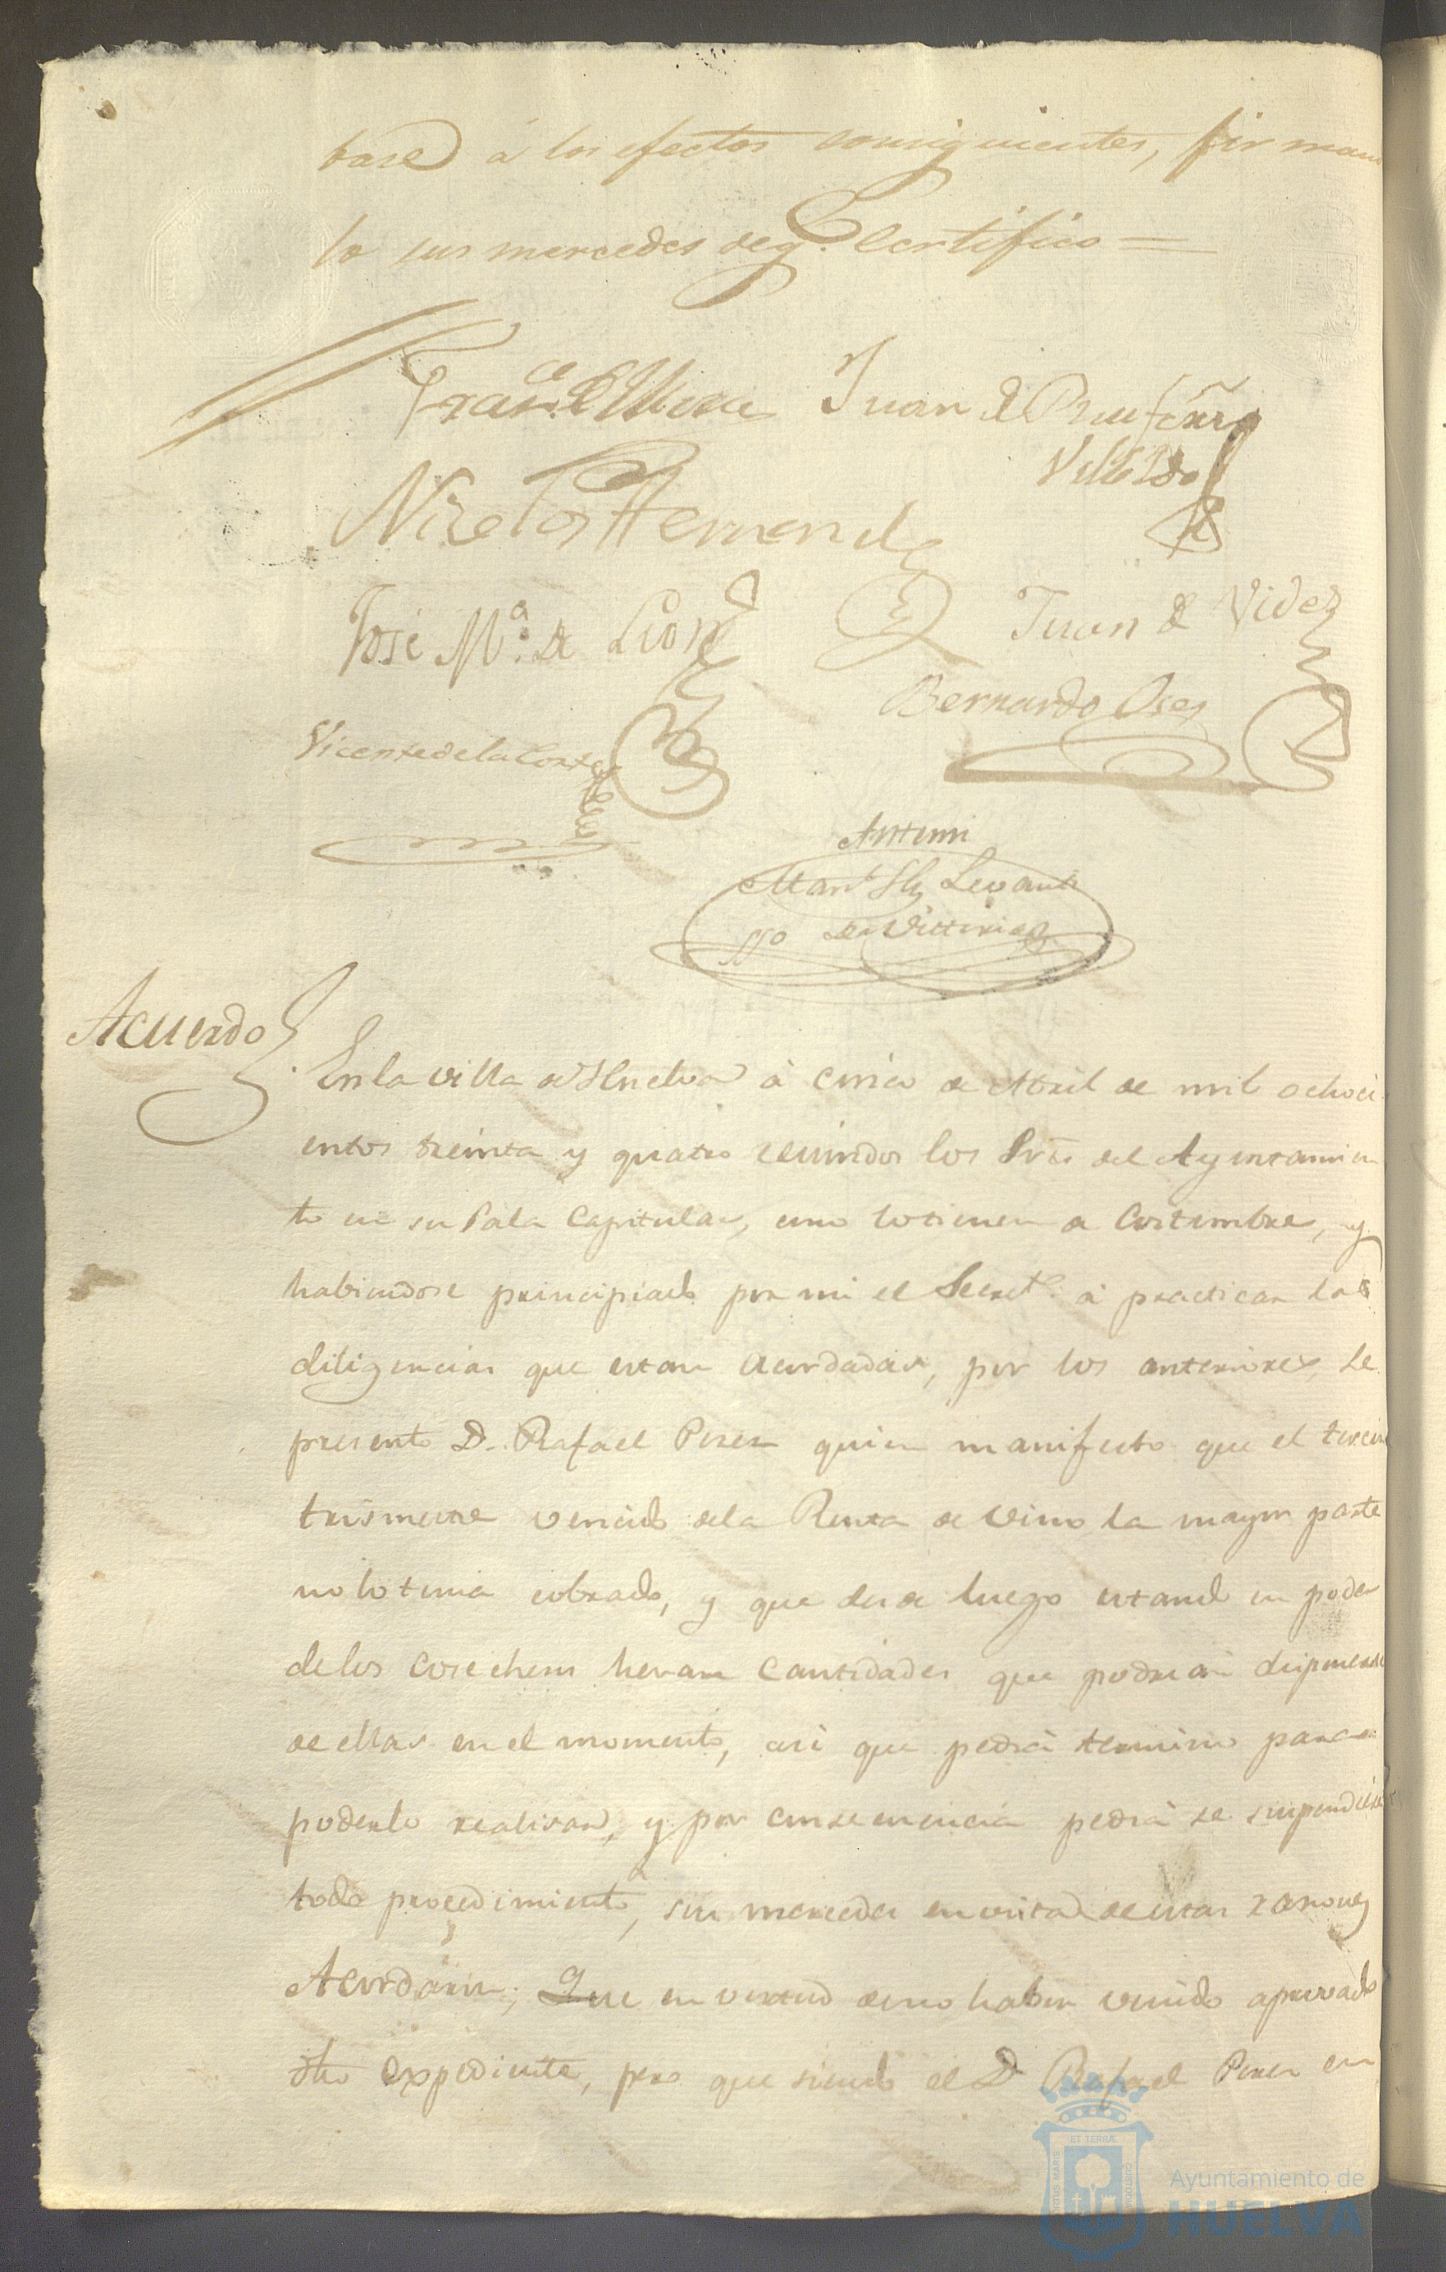 base á los efectos consiguientes, firman
lo sus mercedes de q.e Certifico =
Fran.co de Mora Juan de Fern.z
Villo
Nicolas Hernand.z
José M.a de Leon Juan de Vides
Bernardo Oses
Vicente de la Corte
Antemi
Man.l Levante
SSo de Vittoria
Acuerdo
En la villa de Huelva á cinco de Abril de mil ochoci
entos treinta y quatro reunidos los Sres del Ayuntamien
to en su Sala Capitular, como lo tienen de Costumbre, y
habiendose principiado por mi el Secret.o á practicar las
diligencias que estan acordadas, por los anteriores, se
presentó D. Rafael Perez quien manifesto que el tercer
trismestre vencido de la Renta de Vino la mayor parte
no lo tenia cobrado, y que desde luego estando en poder
de los Cosecheros heran Cantidades que podrian disponerse
de ellas en el momento, asi que pedia termino para
poderlo realisar, y por consecuencia pedia se suspendiese
todo procedimiento, sus mercedes en vista de estas razones
Acordaron; Que en virtud de no haber venido aprovado
dho expediente, pero que siendo el D Rafael Perez en
ET TERRÆ
PORTUS MARIS
CUSTODIA
Ayuntamiento de
HUELVA